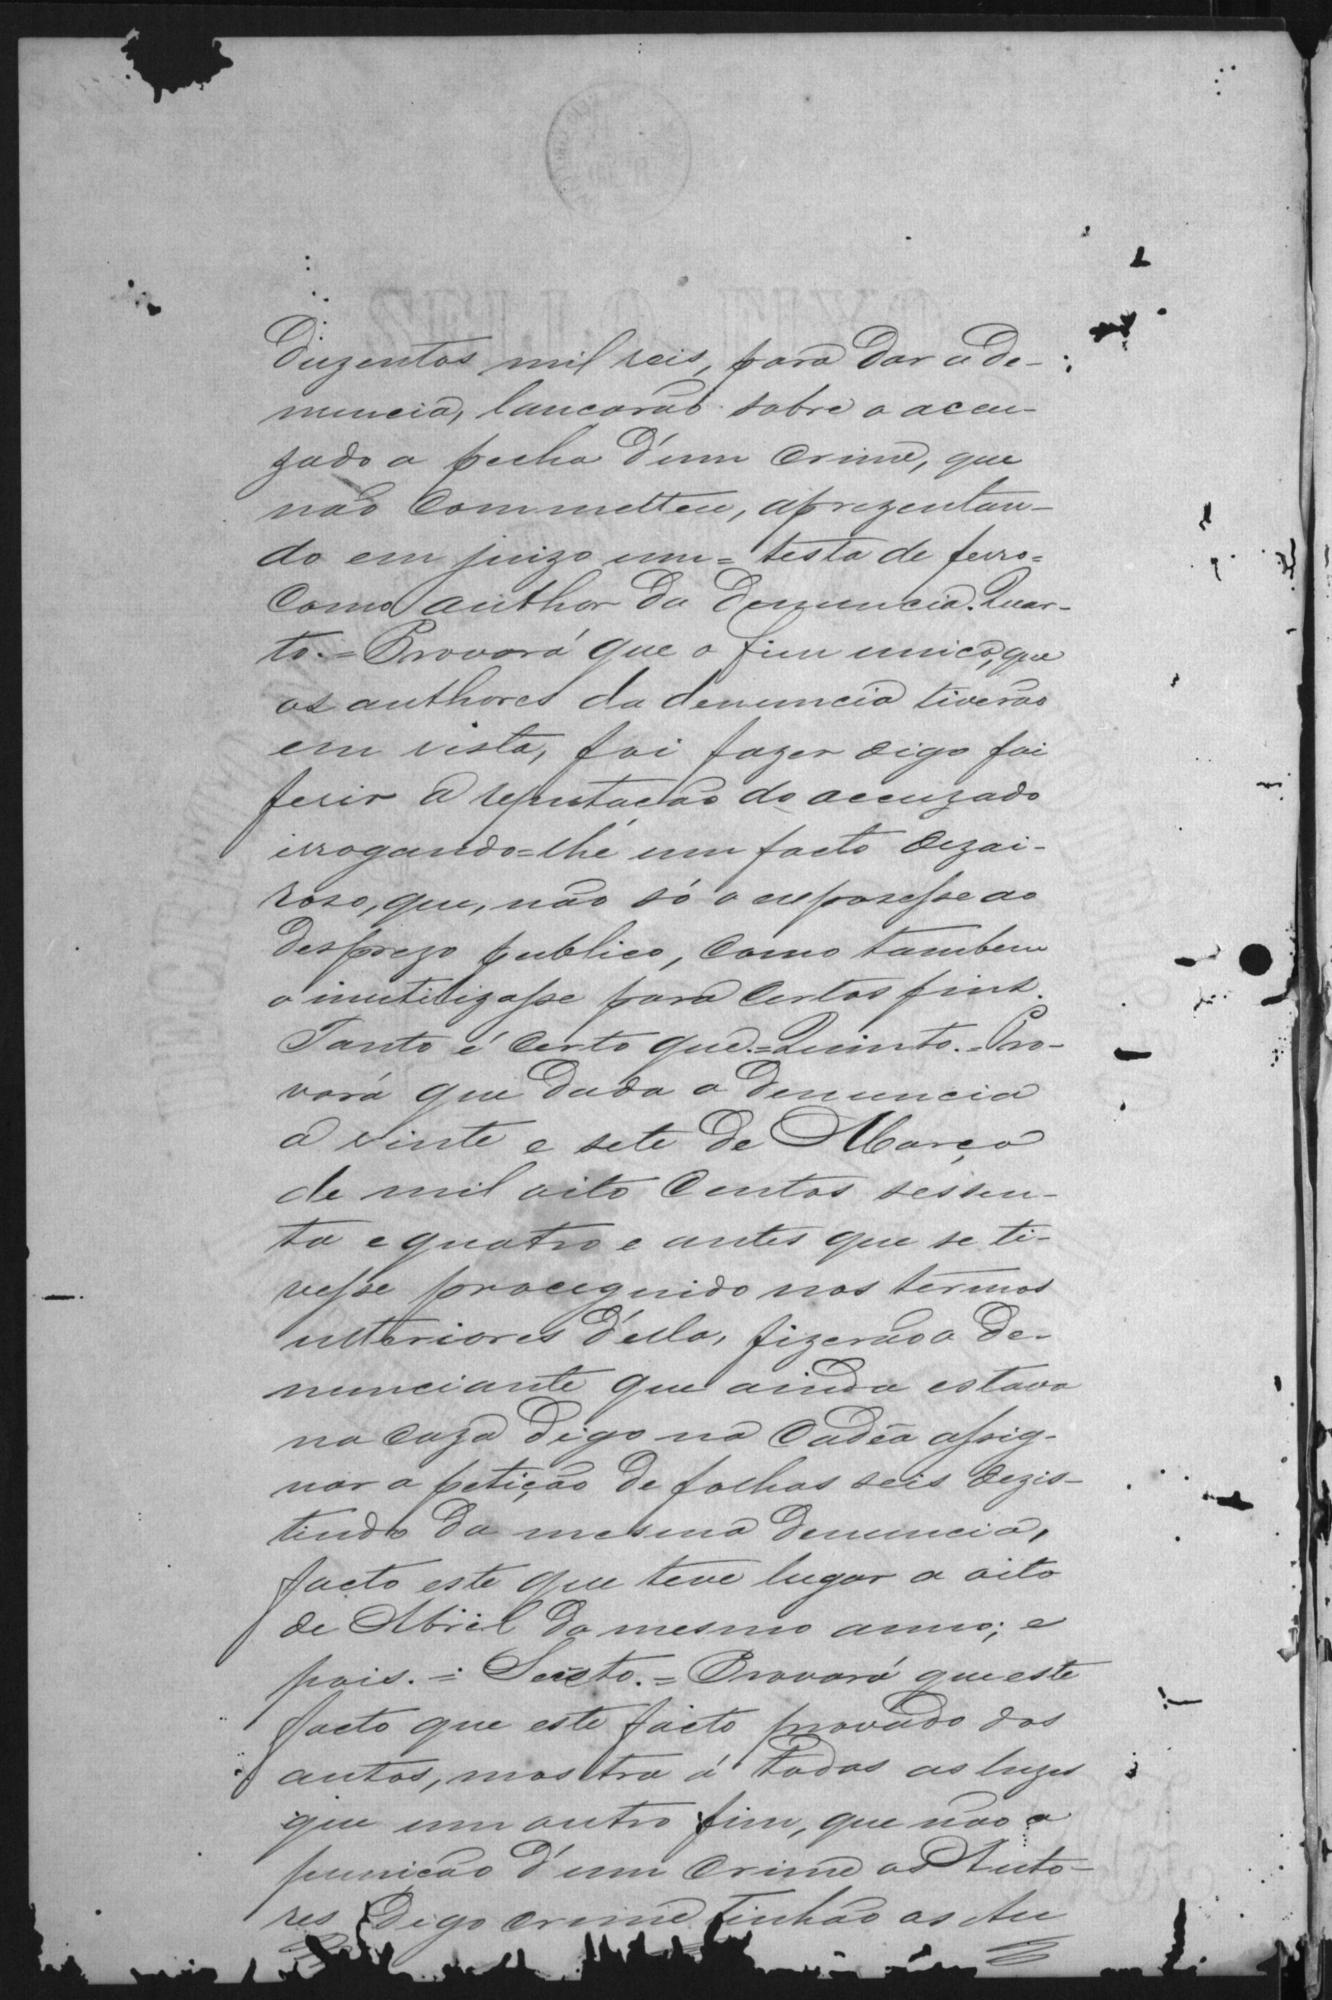 duzentos mil reis, para dar a de-
nuncia, lançarão sobre o accu-
zado a pecha d'um crime, que
não commetteu, aprezentan-
do em juizo um = testa de ferro =
como author da denuncia. Quar-
to. = Provará que o fim unico, que
os authores da denuncia tiverão
em vista, foi fazer digo foi
ferir a reputação do accuzado
irrogando-lhe um facto dezai-
roso, que, não só o expozesse ao
desprezo publico, como tambem
o inutilizasse para certos fins.
Tanto é certo que. = Quinto. = Pro-
vará que dada a denuncia
a vinte e sete de Março
de mil oito centos sessen-
ta e quatro e antes que se ti-
vesse proceguido nos termos
ulteriores d'ella, fizerão a de-
nunciante que ainda estava
na caza digo na cadêa assig-
nar a petição de folhas seis dezis-
tindo da mesma denuncia,
facto este que teve lugar a oito
de Abril do mesmo anno; e
pois. = Sexto. = Provará que este
facto que este facto provado dos
autos, mostra á todas as luzes
que um outro fim, que não a
punição d'um crime os Auto-
res digo crime tinhão os Au